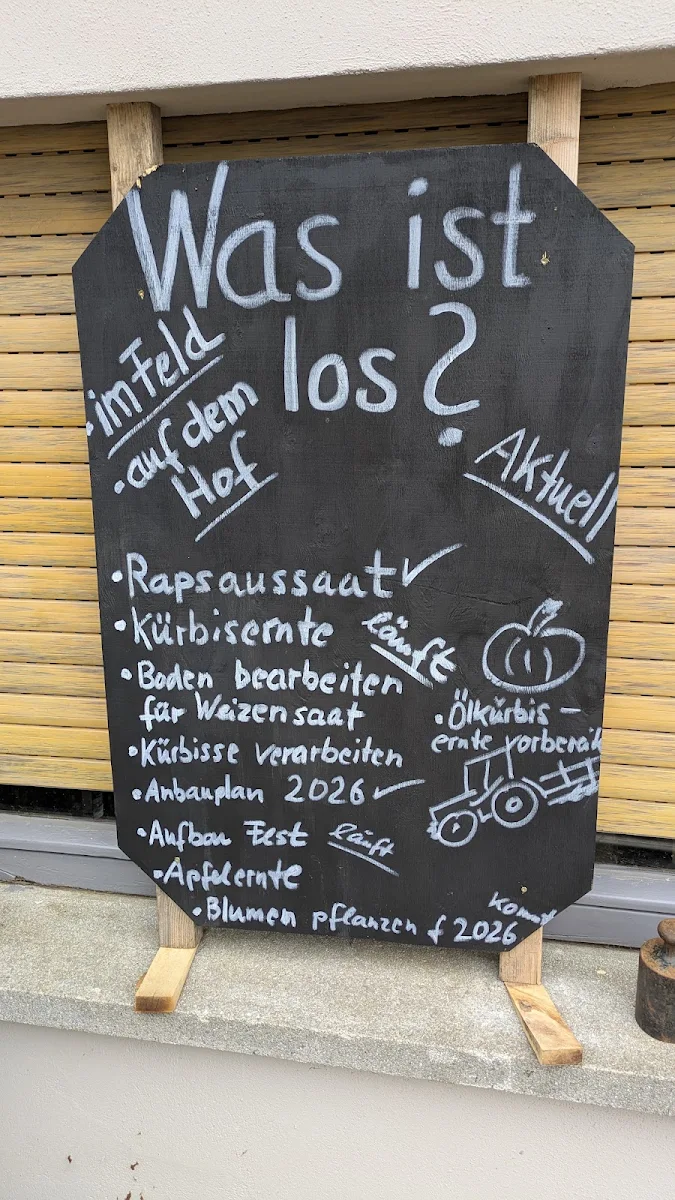 Was ist
los?
• im Feld
• auf dem
Hof
Aktuell
• Rapsaussaat ✓
• Kürbisernte läuft
• Boden bearbeiten
für Weizensaat
• Ölkürbis-
ernte vorbereit
• Kürbisse verarbeiten
• Anbauplan 2026 ✓
• Aufbau Fest läuft
• Apfelernte
• Blumen pflanzen f 2026
kommt